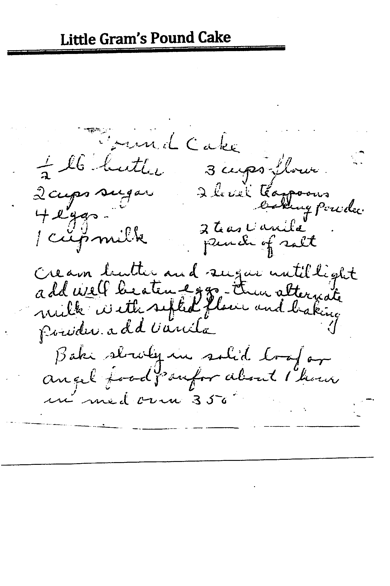 Little Gram's Pound Cake
Pound Cake
1/2 lb butter
3 cups flour
2 cups sugar
2 level teaspoons
baking powder
4 eggs
1 cup milk
2 teas vanila
pinch of salt
Cream butter and sugar until light
add well beaten eggs - then alternate
milk with sifted flour and baking
powder. add vanila
Bake slowly in solid loaf or
angel food pan for about 1 hour
in med oven 350°